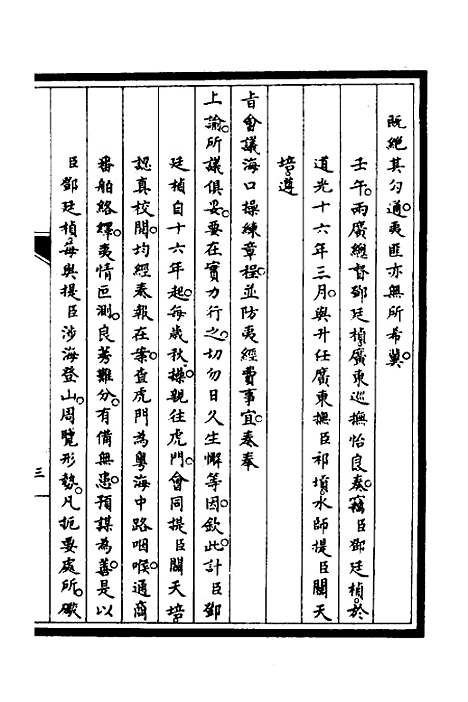 既絕其勾通。夷匪亦無所希冀。
壬午。兩廣總督鄧廷楨。廣東巡撫怡良奏。竊臣鄧廷楨。於
道光十六年三月。與升任廣東撫臣祁𡎴。水師提臣關天
培。遵
旨會議海口操練章程。並防夷經費事宜。奏奉
上諭。所議俱妥。要在實力行之。切勿日久生懈等因。欽此。計臣鄧
廷楨自十六年起。每歲秋操。親往虎門。會同提臣關天培。
認真校閱。均經奏報在案。查虎門為粵海中路咽喉。通商
番舶絡繹。夷情叵測。良莠難分。有備無患。預謀為善。是以
臣鄧廷楨。每與提臣涉海登山。周覽形勢。凡扼要處所。礮
三